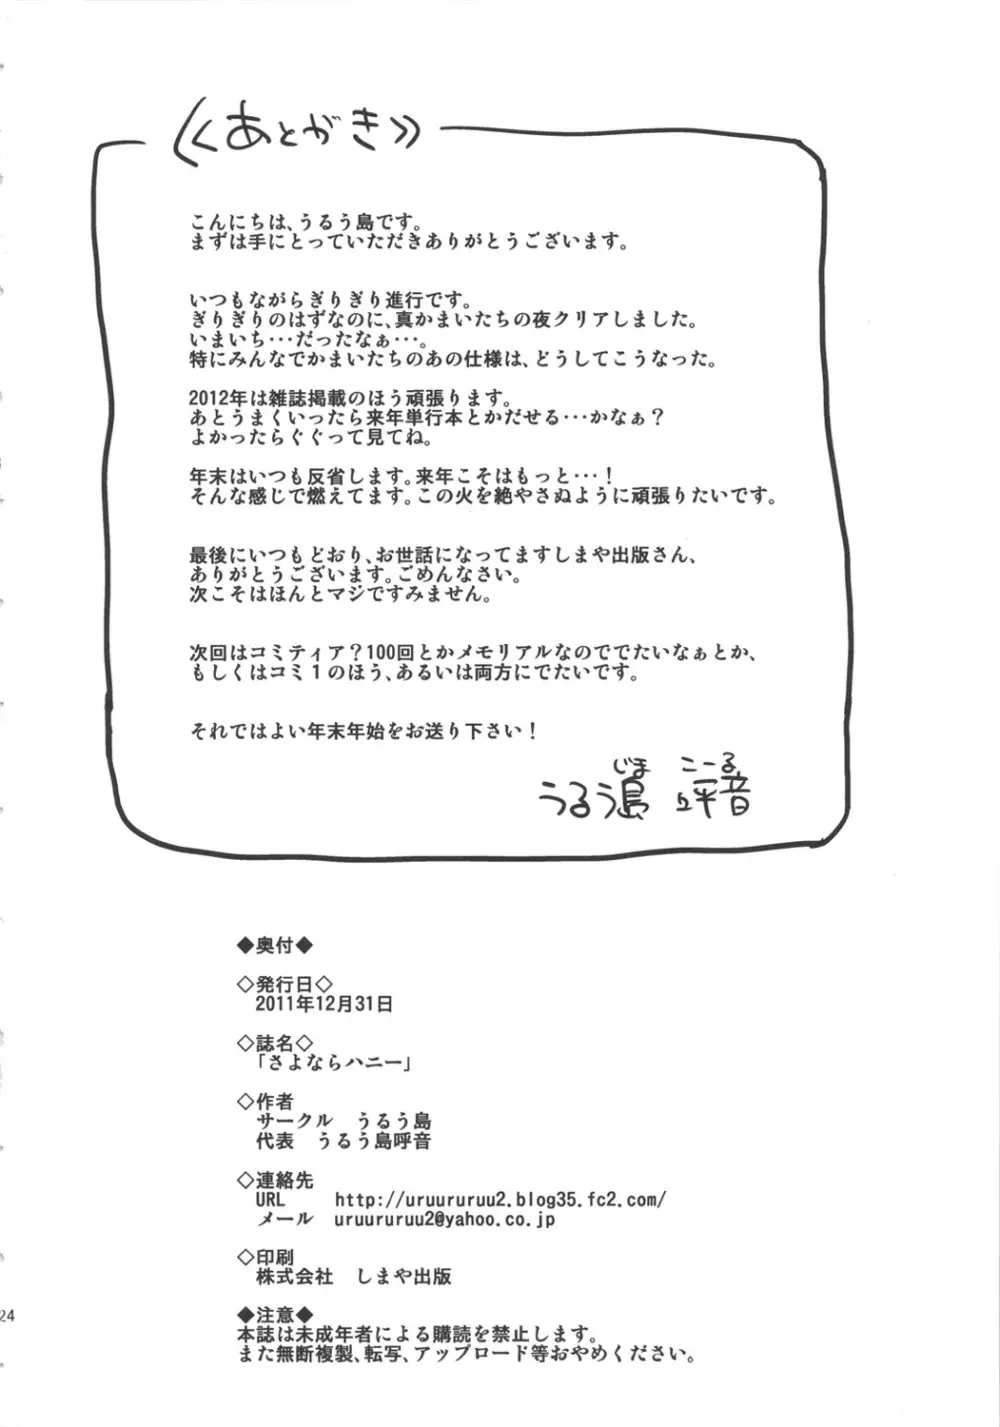 ≪あとがき≫
こんにちは、うるう島です。
まずは手にとっていただきありがとうございます。
いつもながらぎりぎり進行です。
ぎりぎりのはずなのに、真かまいたちの夜クリアしました。
いまいち・・・だったなぁ・・・。
特にみんなでかまいたちのあの仕様は、どうしてこうなった。
2012年は雑誌掲載のほう頑張ります。
あとうまくいったら来年単行本とかだせる・・・かなぁ？
よかったらぐぐって見てね。
年末はいつも反省します。来年こそはもっと・・・！
そんな感じで燃えてます。この火を絶やさぬように頑張りたいです。
最後にいつもどおり、お世話になってますしまや出版さん、
ありがとうございます。ごめんなさい。
次こそはほんとマジですみません。
次回はコミティア？100回とかメモリアルなのででたいなぁとか、
もしくはコミ１のほう、あるいは両方にでたいです。
それではよい年末年始をお送り下さい！
じま こーる
うるう島 呼音
◆奥付◆
◇発行日◇
2011年12月31日
◇誌名◇
「さよならハニー」
◇作者
サークル　うるう島
代表　うるう島呼音
◇連絡先
URL　http://uruururuu2.blog35.fc2.com/
メール　uruururuu2@yahoo.co.jp
◇印刷
株式会社　しまや出版
24
◆注意◆
本誌は未成年者による購読を禁止します。
また無断複製、転写、アップロード等おやめください。